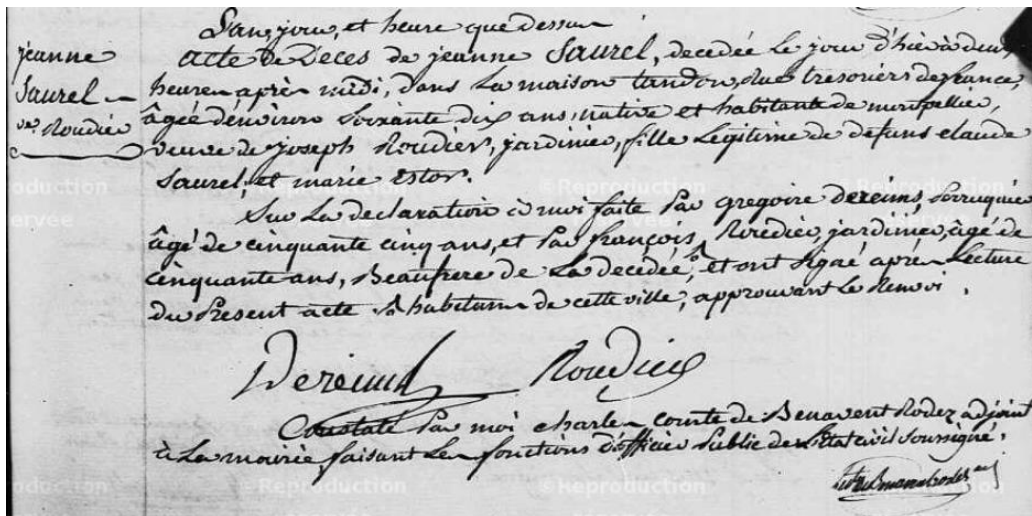 L'an, jour, et heure que dessus
jeanne
Saurel
ve. Roudier
acte de Deces de jeanne Saurel, decedée le jour d'hier à deux
heures après midi, dans la maison tandon, rue tresoriers de france,
âgée d'environ soixante dix ans, native et habitante de montpellier,
veuve de joseph Roudier, jardinier, fille legitime de defuns claude
Saurel, et marie Estor.
Sur la declaration à moi faite par gregoire dereims, serrurier
âgé de cinquante cinq ans, et par françois Roudier, jardinier, âgé de
cinquante ans, Beaufrere de la decedée, et ont signé après lecture
du Present acte habitans de cette ville, approuvant le Renvoi.
Dereims Roudier
Constaté Par moi charles comte de Benavent Rodez adjoint
à la mairie, faisant les fonctions d'officier Public de l'état civil soussigné.
©Reproduction
réservée